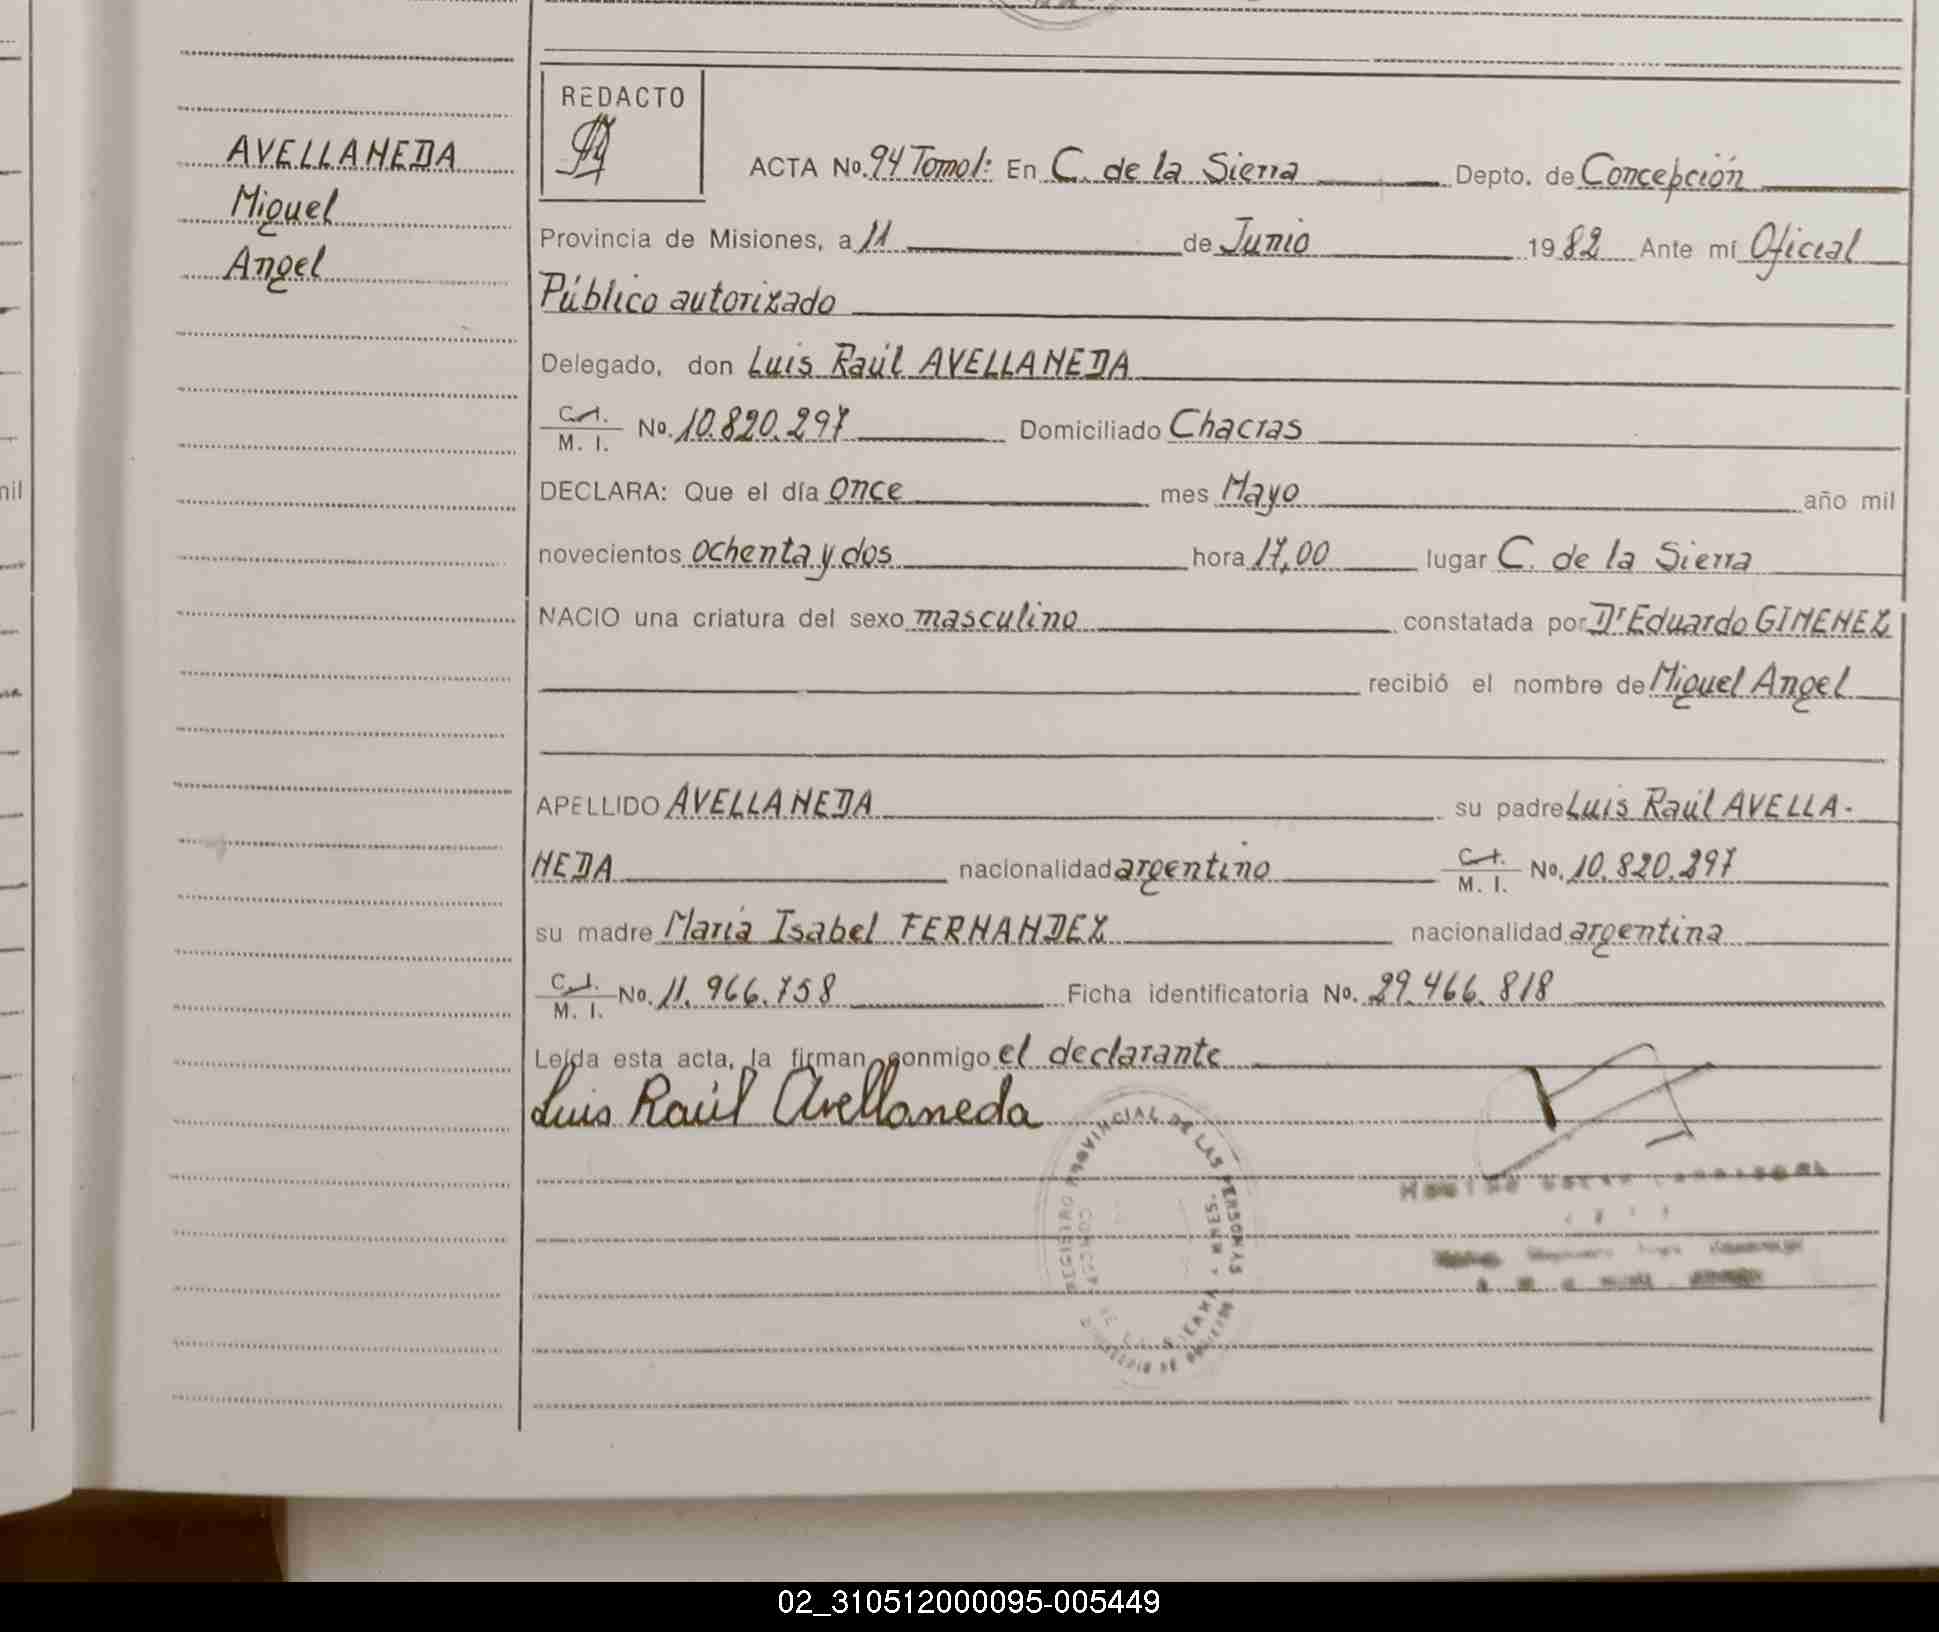 REDACTO
AVELLANEDA
Miguel
Angel
ACTA No. 94 Tomo I: En C. de la Sierra Depto. de Concepción
Provincia de Misiones, a 11 de Junio 1982 Ante mí Oficial
Público autorizado
Delegado, don Luis Raúl AVELLANEDA
C. I.
M. I. No. 10.820.297 Domiciliado Chacras
DECLARA: Que el día once mes Mayo año mil
novecientos ochenta y dos hora 17,00 lugar C. de la Sierra
NACIO una criatura del sexo masculino constatada por Dr Eduardo GIMENEZ
recibió el nombre de Miguel Angel
APELLIDO AVELLANEDA su padre Luis Raúl AVELLA-
NEDA nacionalidad argentino C. I.
M. I. No. 10.820.297
su madre María Isabel FERNANDEZ nacionalidad argentina
C. I.
M. I. No. 11.966.758 Ficha identificatoria No. 29.466.818
Leída esta acta, la firman conmigo el declarante
Luis Raúl Avellaneda
REGISTRO PROVINCIAL DE LAS PERSONAS
DE LA SIERRA - MNES.
mil
02_310512000095-005449